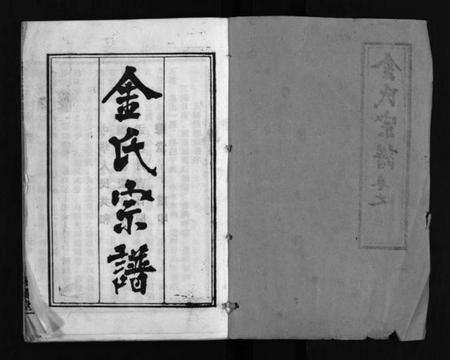 金氏宗譜
金氏宗譜卷之